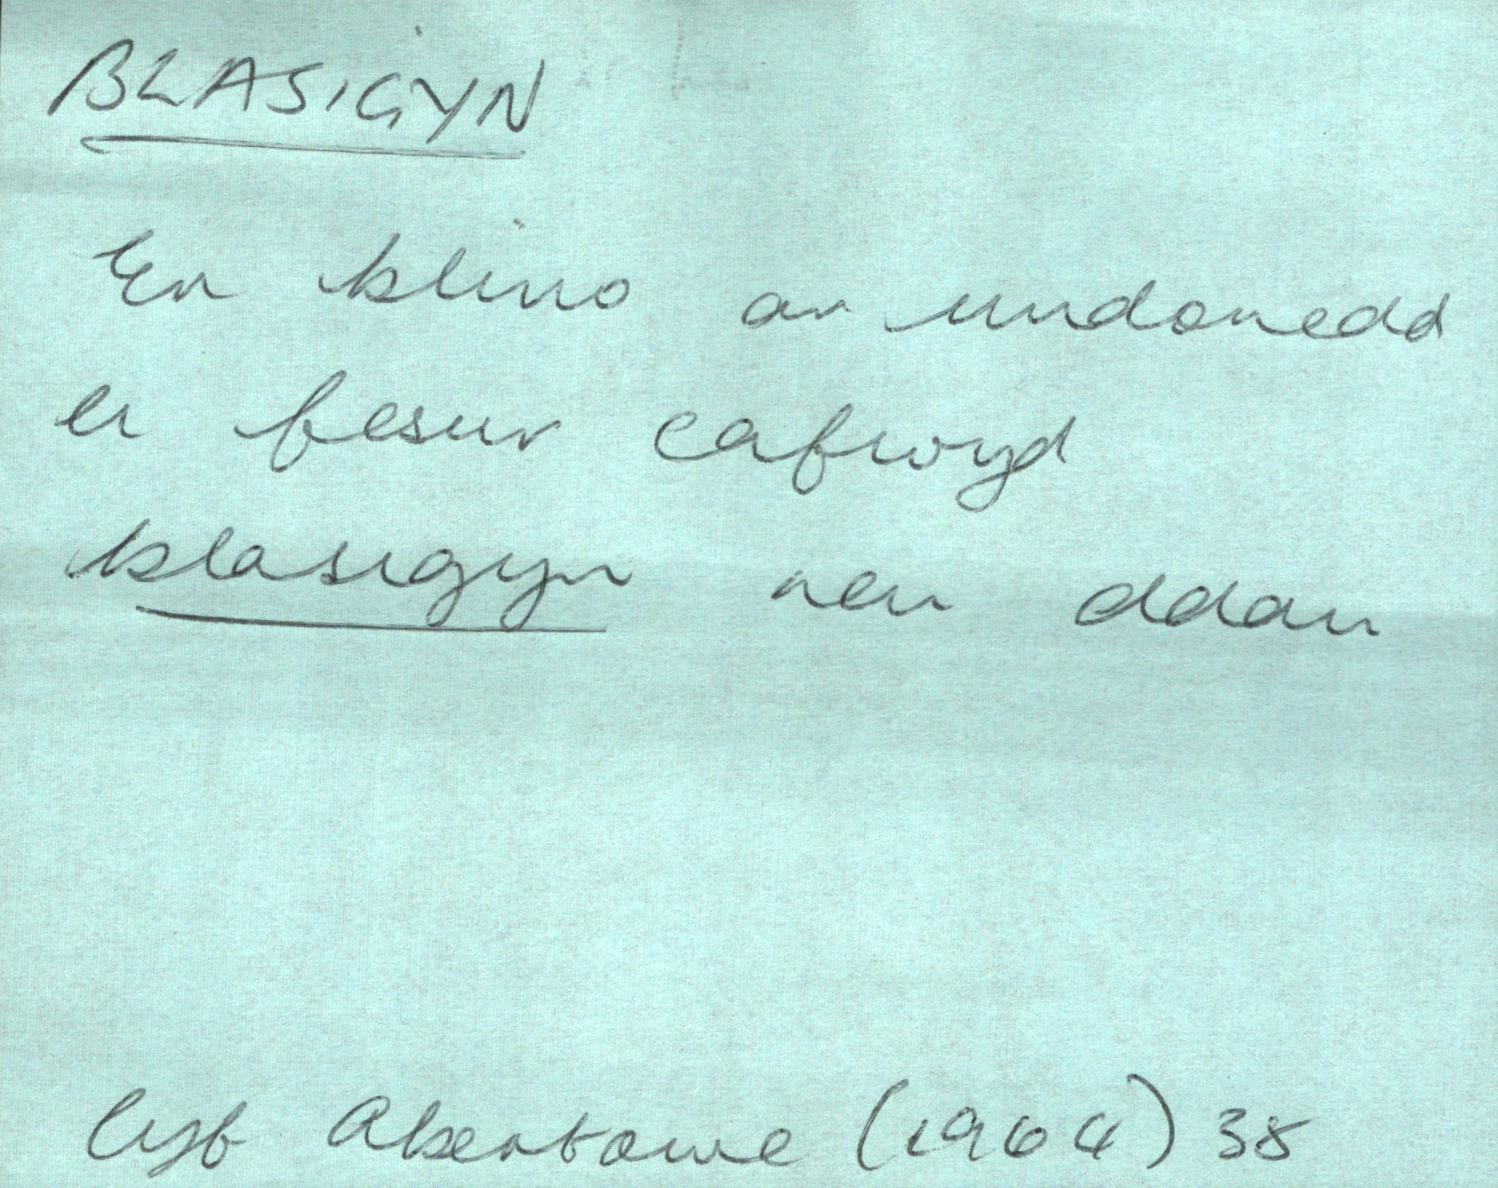 BLASIGYN
Er blino ar undonedd
er fesur cafwyd
blasigyn neu ddau
Cyf Abertawe (1964) 38